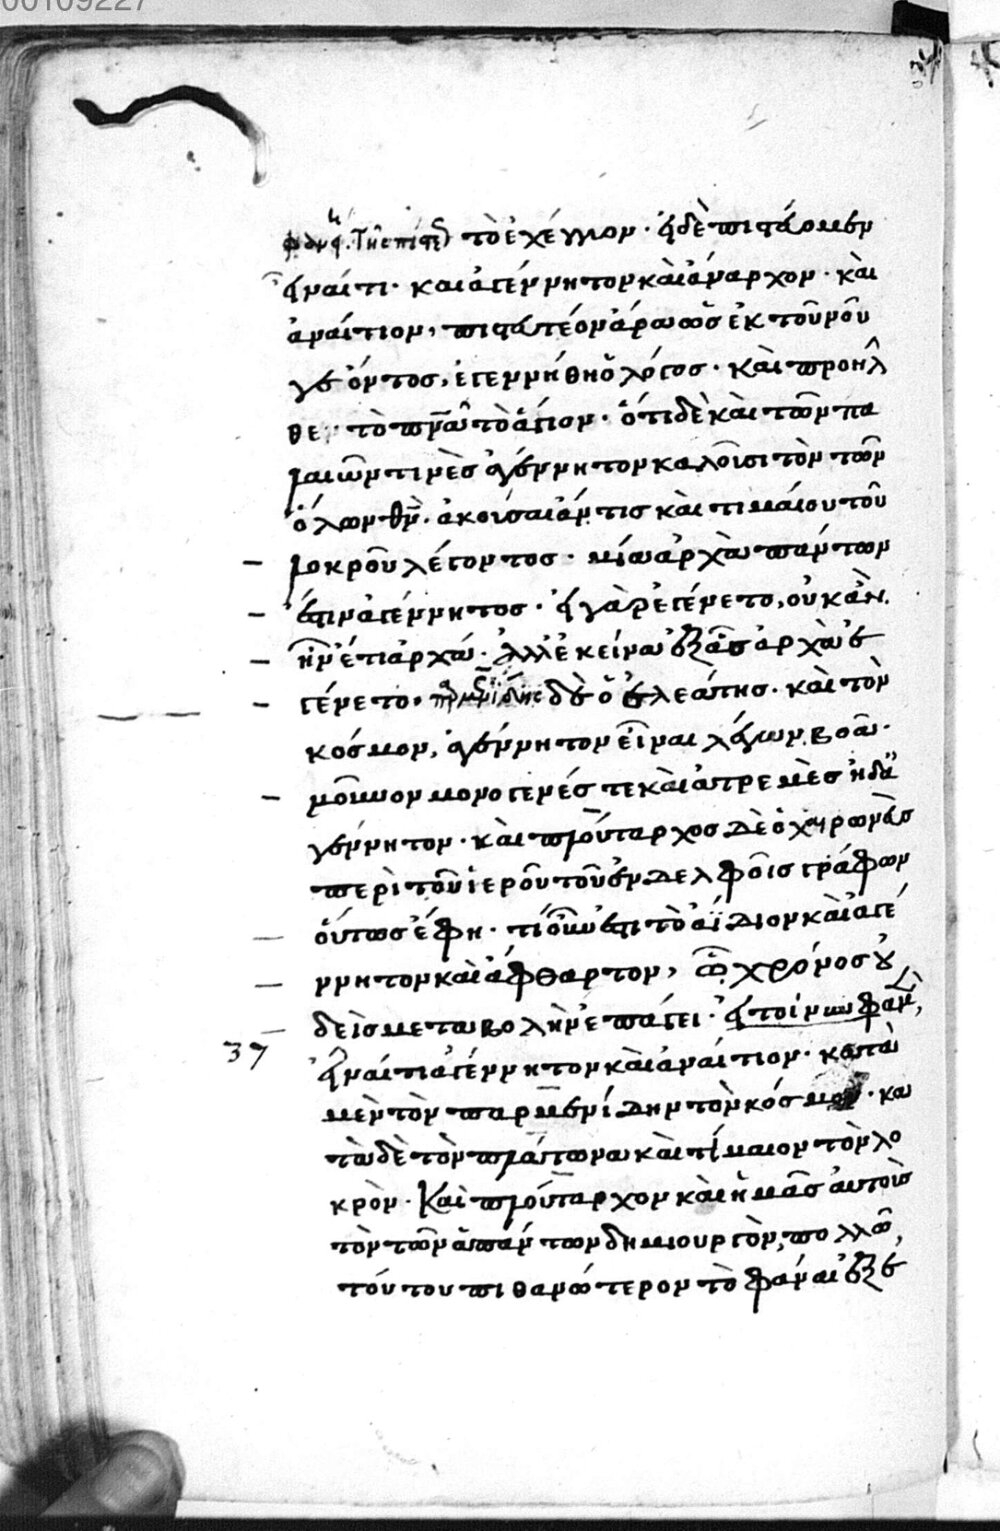 00109227
τὸ ἐχέγγυον· εἰ δὲ πιστεύομεν
εἶναί τι καὶ ἀγέννητον καὶ ἄναρχον· καὶ
ἀναίτιον, πιστευτέον ἄρα ὡς ἐκ τοῦ νοῦ
γε ὄντος, ἐγεννήθη ὁ λόγος· καὶ προῆλ
θε τὸ πνεῦμα τὸ ἅγιον· ὅτι δὲ καὶ τῶν πα
λαιῶν τινὲς ἀγέννητον καλοῦσι τὸν τῶν
ὅλων θν̄· ἀκούσαι ἄν τις καὶ τιμαίου τοῦ
λοκροῦ λέγοντος· μία ἀρχὰ πάντων
ἐστιν ἀγέννητος· εἰ γὰρ ἐγένετο, οὐκ ἂν
ἦν ἔτι ἀρχά· ἀλλ' ἐκείνα ἐξ ἇς ἀρχὰ ἐ
γένετο· δὲ ὁ ἐλεάτης· καὶ τὸν
κόσμον, ἀγέννητον εἶναι λέγων βοᾶ·
μοῦνον μονογενές τε καὶ ἀτρεμὲς ἠδ' ἀ
γέννητον· καὶ πλούταρχος δὲ ὁ χαιρωνεὺς
περὶ τοῦ ἱεροῦ τοῦ ἐν δελφοῖς γράφων
οὕτως ἔφη· τί οὖν ἐστι τὸ ἀΐδιον καὶ ἀγέ
ννητον καὶ ἄφθαρτον, ᾧ χρόνος οὐ
δεὶς μεταβολὴν ἐπάγει· εἰ τοίνυν φαμὲν,
37 εἶναί τι ἀγέννητον καὶ ἀναίτιον· κατὰ
μὲν τὸν παρμενίδην τὸν κόσμον· κα
τὰ δὲ τὸν πλάτωνα καὶ τίμαιον τὸν λο
κρὸν· καὶ πλούταρχον καὶ ἡμᾶς αὐτοὺς
τὸν τῶν ἁπάντων δημιουργὸν, πολλῶ,
τούτου πιθανώτερον τὸ φάναι ἐξ ἐ